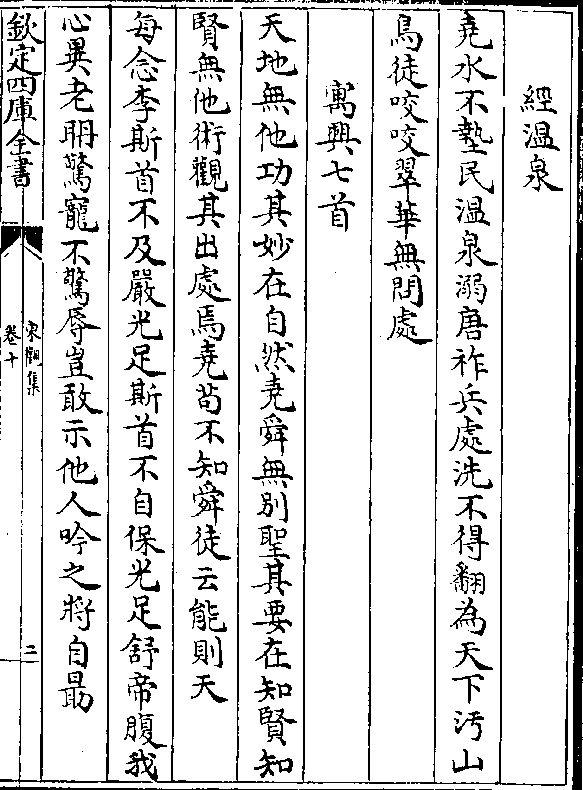 經温泉
堯水不墊民温泉溺唐祚兵處洗不得翻為天下汚山
鳥徒咬咬翠華無問處
寓興七首
天地無他功其妙在自然堯舜無別聖其要在知賢知
賢無他術觀其出處焉堯茍不知舜徒云能則天
每念李斯首不及嚴光足斯首不自保光足舒帝腹我
心異老耼驚寵不驚辱豈敢示他人吟之將自勗
欽定四庫全書
東觀集
卷十
二